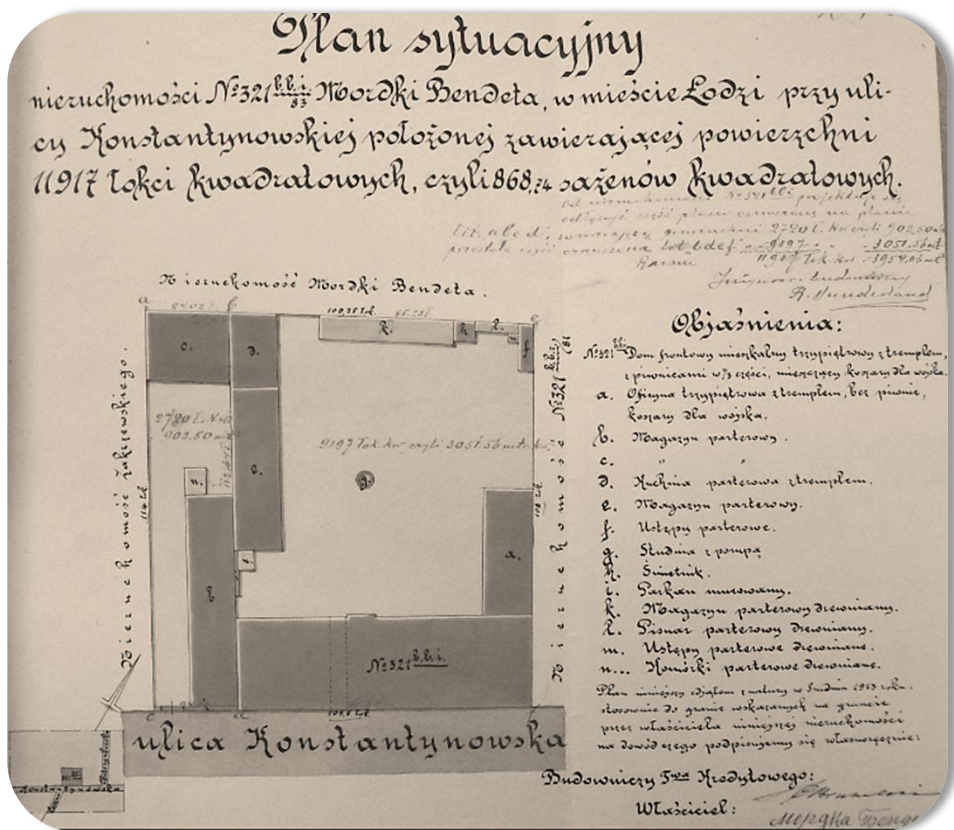 Plan sytuacyjny
nieruchomości №321 b.b.i. 83 Mordki Bendeta, w mieście Łodzi przy uli-
cy Konstantynowskiej położonej zawierającej powierzchni
11917 łokci kwadratowych, czyli 868,74 sażenów kwadratowych.
od nieruchomości №321 b.b.i. projektuje się
odłączyć część placu oznaczoną na planie
lit. abcd, powierzchni 2720 ł. kw. czyli 902.50
pozostała część oznaczona 9197 3051.56
Razem 11917 łok. kw. 3954.06
Inżynier budowniczy
Nieruchomość Mordki Bendeta.
a b
109,25 łok.
c. d. k. h. l. m. f
Nieruchomość Zakrzewskiego.
Nieruchomość №321 b.b.i.
2720 ł. kw.
902.50
9197 łok. kw. czyli 3051.56 mtr. kw.
n. e. g.
n. a.
b
№321 b.b.i.
ulica Konstantynowska
Konstantynowska
Objaśnienia:
№321 Dom frontowy mieszkalny trzypiętrowy z tremplem,
z piwnicami w ⅔ części, mieszczący koszary dla wojska.
a. Oficyna trzypiętrowa z tremplem, bez piwnic,
koszary dla wojska.
b. Magazyn parterowy.
c. " "
d. Kuchnia parterowa z tremplem.
e. Magazyn parterowy.
f. Ustępy parterowe.
g. Studnia z pompą
h. Śmietnik.
i. Parkan murowany.
k. Magazyn parterowy drewniany.
l. Pisuar parterowy drewniany.
m. Ustępy parterowe drewniane.
n... Komórki parterowe drewniane.
Plan niniejszy zdjąłem z natury w Grudniu 1913 roku.
stosownie do granic wskazanych na gruncie
przez właściciela niniejszej nieruchomości
na dowód czego podpisujemy się własnoręcznie:
Budowniczy Twa Kredytowego:
Właściciel:
Мордка Бенде